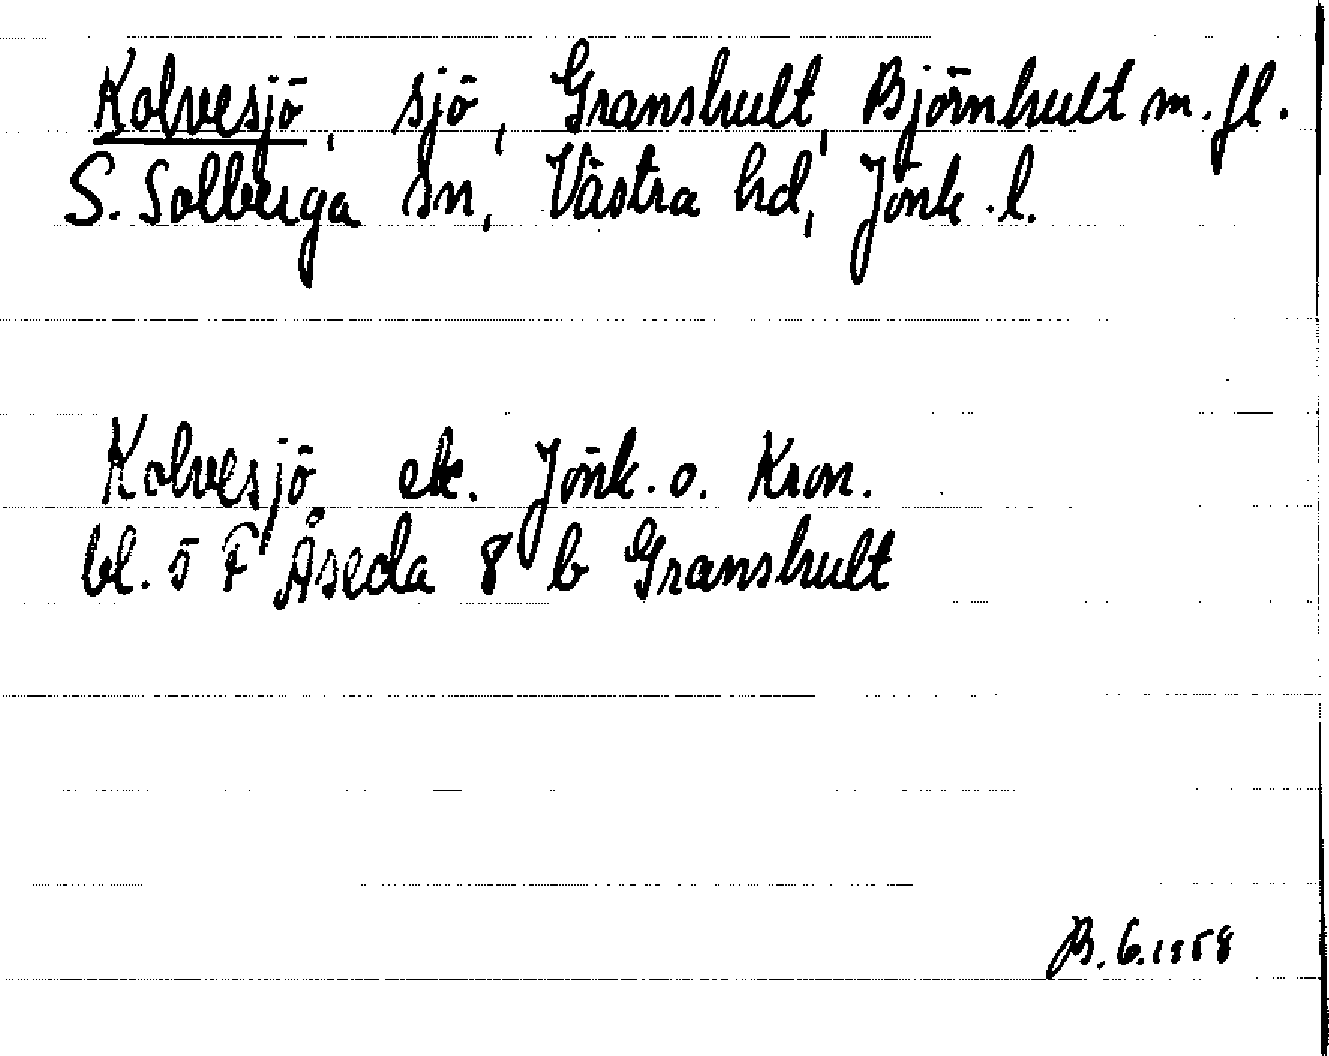 Kalvesjö, sjö, Granshult, Björnhult m.fl.
S. Solberga sn, Västra hd, Jönk.l.
Kalvesjö ek. Jönk. o. Kron.
bl. 5 F Åseda 8 b Granshult
B. G. 1958